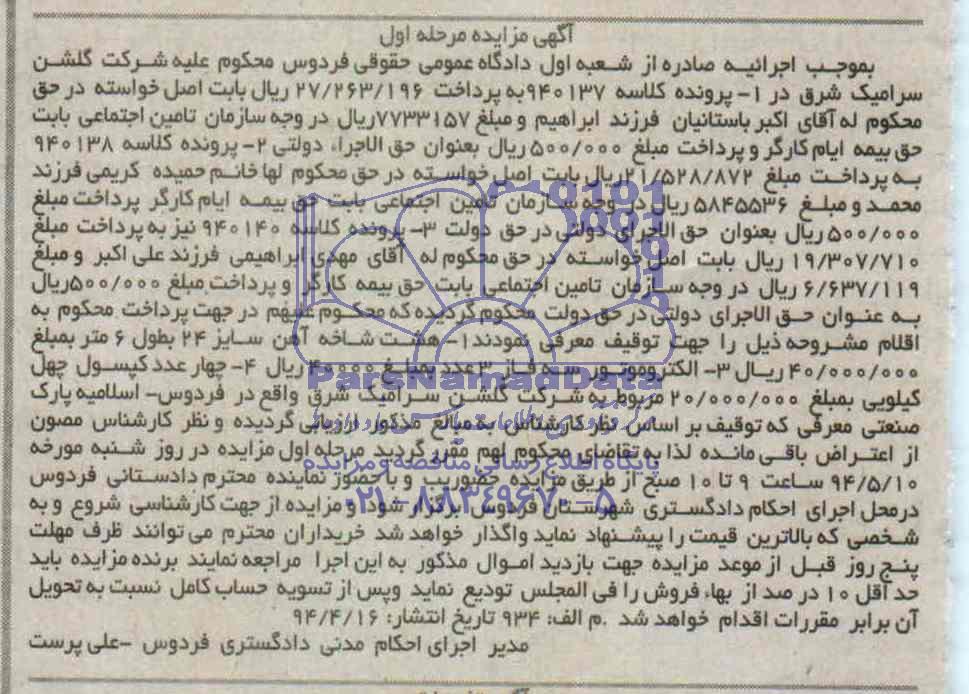 آگهی مزایده مرحله اول
بموجب اجرائیه صادره از شعبه اول دادگاه عمومی حقوقی فردوس محکوم علیه شرکت گلشن
سرامیک شرق در ۱- پرونده کلاسه ۹۴۰۱۳۷به پرداخت ۲۷/۲۶۳/۱۹۶ ریال بابت اصل خواسته در حق
محکوم له آقای اکبر باستانیان فرزند ابراهیم و مبلغ ۷۷۳۳۱۵۷ریال در وجه سازمان تامین اجتماعی بابت
حق بیمه ایام کارگر و پرداخت مبلغ ۵۰۰/۰۰۰ ریال بعنوان حق الاجراء دولتی ۲- پرونده کلاسه ۹۴۰۱۳۸
به پرداخت مبلغ ۲۱/۵۲۸/۸۷۲ریال بابت اصل خواسته در حق محکوم لها خانم حمیده کریمی فرزند
محمد و مبلغ ۵۸۴۵۵۳۶ ریال در وجه سازمان تامین اجتماعی بابت حق بیمه ایام کارگر پرداخت مبلغ
۵۰۰/۰۰۰ ریال بعنوان حق الاجرای دولتی در حق دولت ۳- پرونده کلاسه ۹۴۰۱۴۰ نیز به پرداخت مبلغ
۱۹/۳۰۷/۷۱۰ ریال بابت اصل خواسته در حق محکوم له آقای مهدی ابراهیمی فرزند علی اکبر و مبلغ
۶/۶۳۷/۱۱۹ ریال در وجه سازمان تامین اجتماعی بابت حق بیمه کارگر و پرداخت مبلغ ۵۰۰/۰۰۰ریال
به عنوان حق الاجرای دولتی در حق دولت محکوم گردیده که محکوم علیهم در جهت پرداخت محکوم به
اقلام مشروحه ذیل را جهت توقیف معرفی نمودند۱- هشت شاخه آهن سایز ۲۴ بطول ۶ متر بمبلغ
۴۰/۰۰۰/۰۰۰ ریال ۳- الکتروموتور سه فاز ۳عدد بمبلغ ریال ۴- چهار عدد کپسول چهل
کیلویی بمبلغ ۲۰/۰۰۰/۰۰۰ مربوط به شرکت گلشن سرامیک شرق واقع در فردوس- اسلامیه پارک
صنعتی معرفی که توقیف بر اساس نظر کارشناس به مبالغ مذکور ارزیابی گردیده و نظر کارشناس مصون
از اعتراض باقی مانده لذا به تقاضای محکوم لهم مقرر گردید مرحله اول مزایده در روز شنبه مورخه
۹۴/۵/۱۰ ساعت ۹ تا ۱۰ صبح از طریق مزایده حضوری و با حضور نماینده محترم دادستانی فردوس
درمحل اجرای احکام دادگستری شهرستان فردوس برگزار شود و مزایده از جهت کارشناسی شروع و به
شخصی که بالاترین قیمت را پیشنهاد نماید واگذار خواهد شد خریداران محترم می توانند ظرف مهلت
پنج روز قبل از موعد مزایده جهت بازدید اموال مذکور به این اجرا مراجعه نمایند برنده مزایده باید
حد اقل ۱۰ در صد از بهاء فروش را فی المجلس تودیع نماید وپس از تسویه حساب کامل نسبت به تحویل
آن برابر مقررات اقدام خواهد شد .م الف: ۹۳۴ تاریخ انتشار: ۹۴/۴/۱۶
مدیر اجرای احکام مدنی دادگستری فردوس -علی پرست
ParsNamadData
پایگاه اطلاع رسانی مناقصه و مزایده
۰۲۱-۸۸۳۴۹۶۷۰-۵